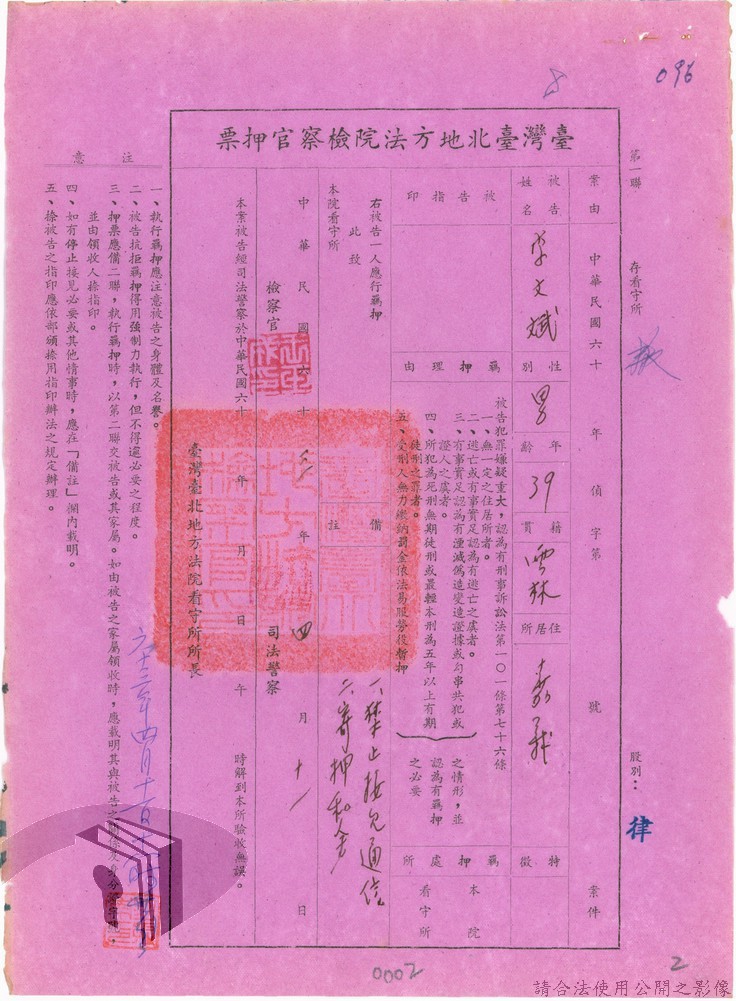 096
8
第一聯　存看守所
股別：律
臺灣臺北地方法院檢察官押票
案由
中華民國六十　年　偵字第　號
案件
被告姓名
李文斌
性別
男
年齡
39
籍貫
雲林
住居所
嘉義
特徵
被告指印
羈押理由
被告犯罪嫌疑重大，認為有刑事訴訟法第一〇一條第七十六條
一、無一定之住居所者。
二、逃亡或有事實足認為有逃亡之虞者。
三、有事實足認為有湮滅偽造變造證據或勾串共犯或證人之虞者。
四、所犯為死刑無期徒刑或最輕本刑為五年以上有期徒刑之罪者。
五、受刑人無力繳納罰金依法易服勞役暫押
之情形，並認為有羈押之必要
羈押處所
本院看守所
右被告一人應行羈押
此致
本院看守所
備註
一、禁止接見通信
二、寄押
中華民國六十三年四月十一日
檢察官
司法警察
本案被告經司法警察於中華民國六十　年　月　日　午　時解到本所驗收無誤。
臺灣臺北地方法院看守所所長
注意
一、執行羈押應注意被告之身體及名譽。
二、被告抗拒羈押得用強制力執行，但不得逾必要之程度。
三、押票應備二聯，執行羈押時，以第二聯交被告或其家屬。如由被告之家屬領收時，應載明其與被告之關係及身分
並由領收人捺指印。
四、如有停止接見必要或其他情事時，應在「備註」欄內載明。
五、捺被告之指印應依部頒捺用指印辦法之規定辦理。
六十三年四月十一日
0002
2
請合法使用公開之影像